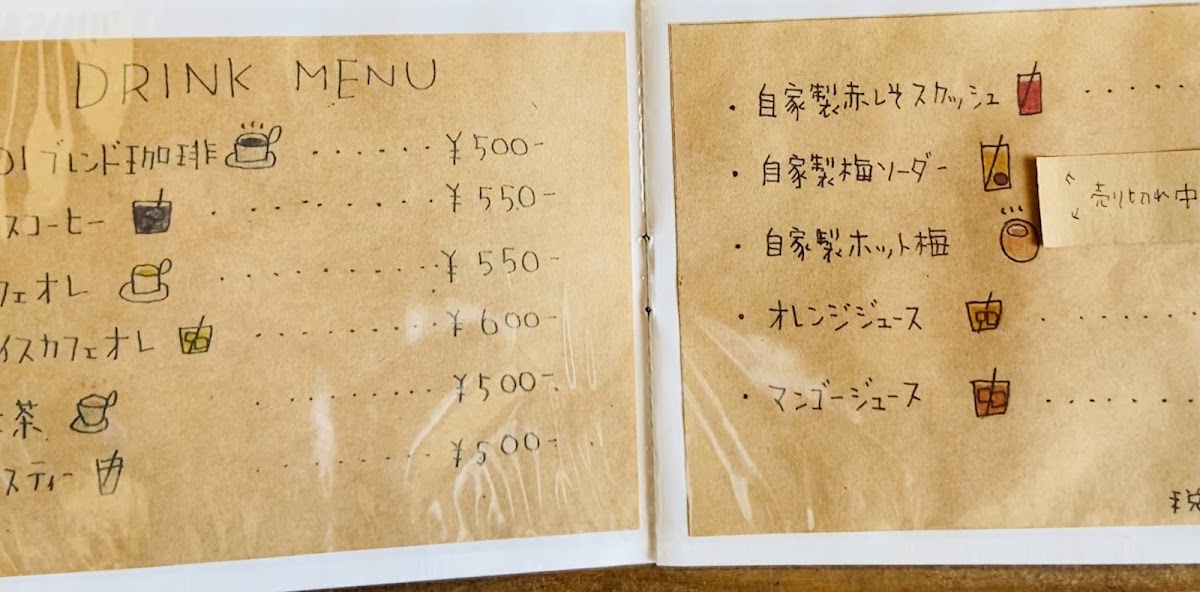 DRINK MENU
ブレンド珈琲 ...... ¥500-
スコーヒー ........... ¥550-
フェオレ .......... ¥550-
イスカフェオレ ......... ¥600-
茶 ......... ¥500-
スティー ......... ¥500-
・自家製赤しそスカッシュ .....
・自家製梅ソーダー
売り切れ中
・自家製ホット梅
・オレンジジュース ........
・マンゴージュース ........
税